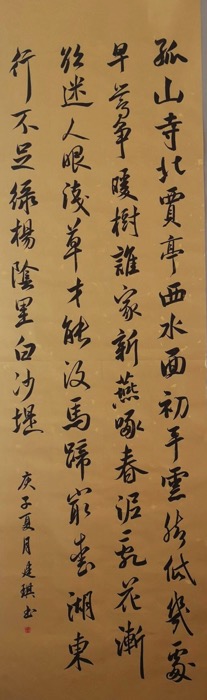 孤山寺北賈亭西水面初平雲脚低幾處
早鶯爭暖樹誰家新燕啄春泥亂花漸
欲迷人眼淺草才能沒馬蹄最愛湖東
行不足綠楊陰里白沙堤
庚子夏月琪书